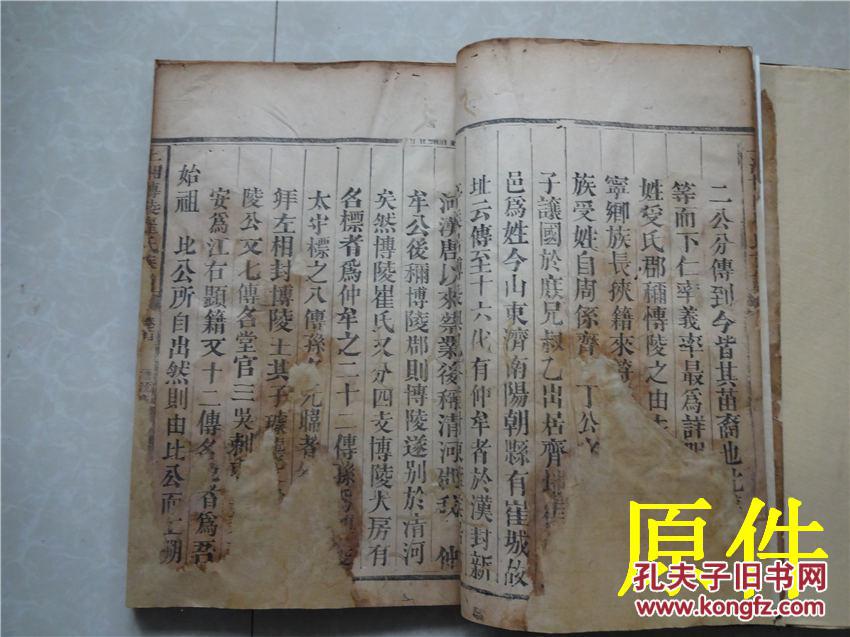 二公分傳到今皆其苗裔也
等而下仁率義率最為詳
姓受氏郡稱博陵之由
寧鄉族長挾籍來
族受姓自周係齊 丁公
子讓國於庶兄叔乙出居齊
邑爲姓今山東濟南陽朝縣有崔城故
址云傳至十六代有仲牟者於漢封新
河漢唐以來 業後稱清河 我 仲
牟公後稱博陵郡則博陵遂別於清河
矣然博陵崔氏又分四支博陵大房有
名標者爲仲牟之二十二傳孫
太守標之八傳孫 元暐者
拜左相封博陵王其子璩
陵公又七傳名堂官三吳刺
安爲江右顯籍又十二傳名 者爲吾
始祖 比公所自出然則由比公而上朔
崔氏族
原件
孔夫子旧书网
www.kongfz.com